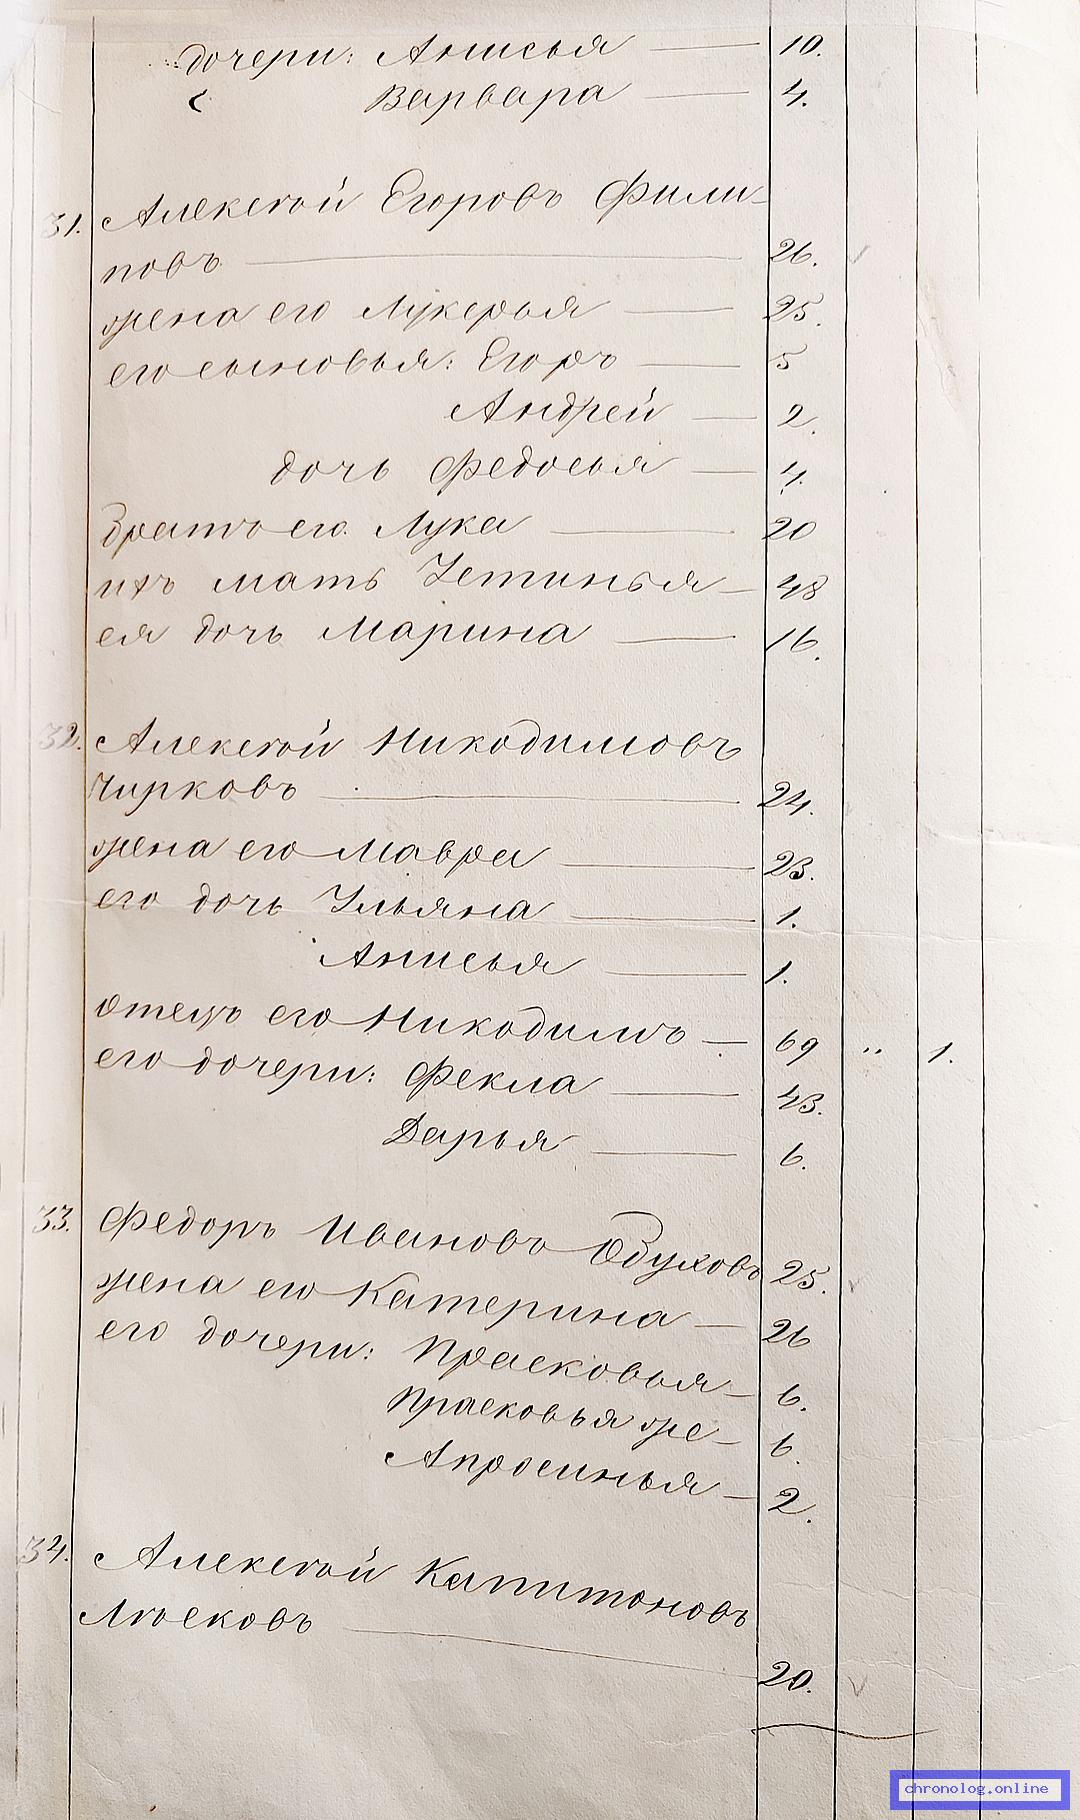 дочери: Анисья — 10.
Варвара — 4.
31. Алексѣй Егоровъ Фили-
повъ — 26.
жена его Лукерья — 25.
его сыновья: Егоръ — 5
Андрей — 2.
дочь Федосья — 4.
братъ его Лука — 20
ихъ мать Устинья — 48
ея дочь Марина — 16.
32. Алексѣй Никодимовъ
Чирковъ — 24.
жена его Мавра — 23.
его дочь Ульяна — 1.
Анисья — 1.
отецъ его Никодимъ — 69 " 1.
его дочери: Фекла — 43.
Дарья — 6.
33. Федоръ Ивановъ Обуховъ 25.
жена его Катерина — 26
его дочери: Прасковья — 6.
Прасковья же — 6.
Апросинья — 2.
34. Алексѣй Капитоновъ
— 20.
chronolog.online